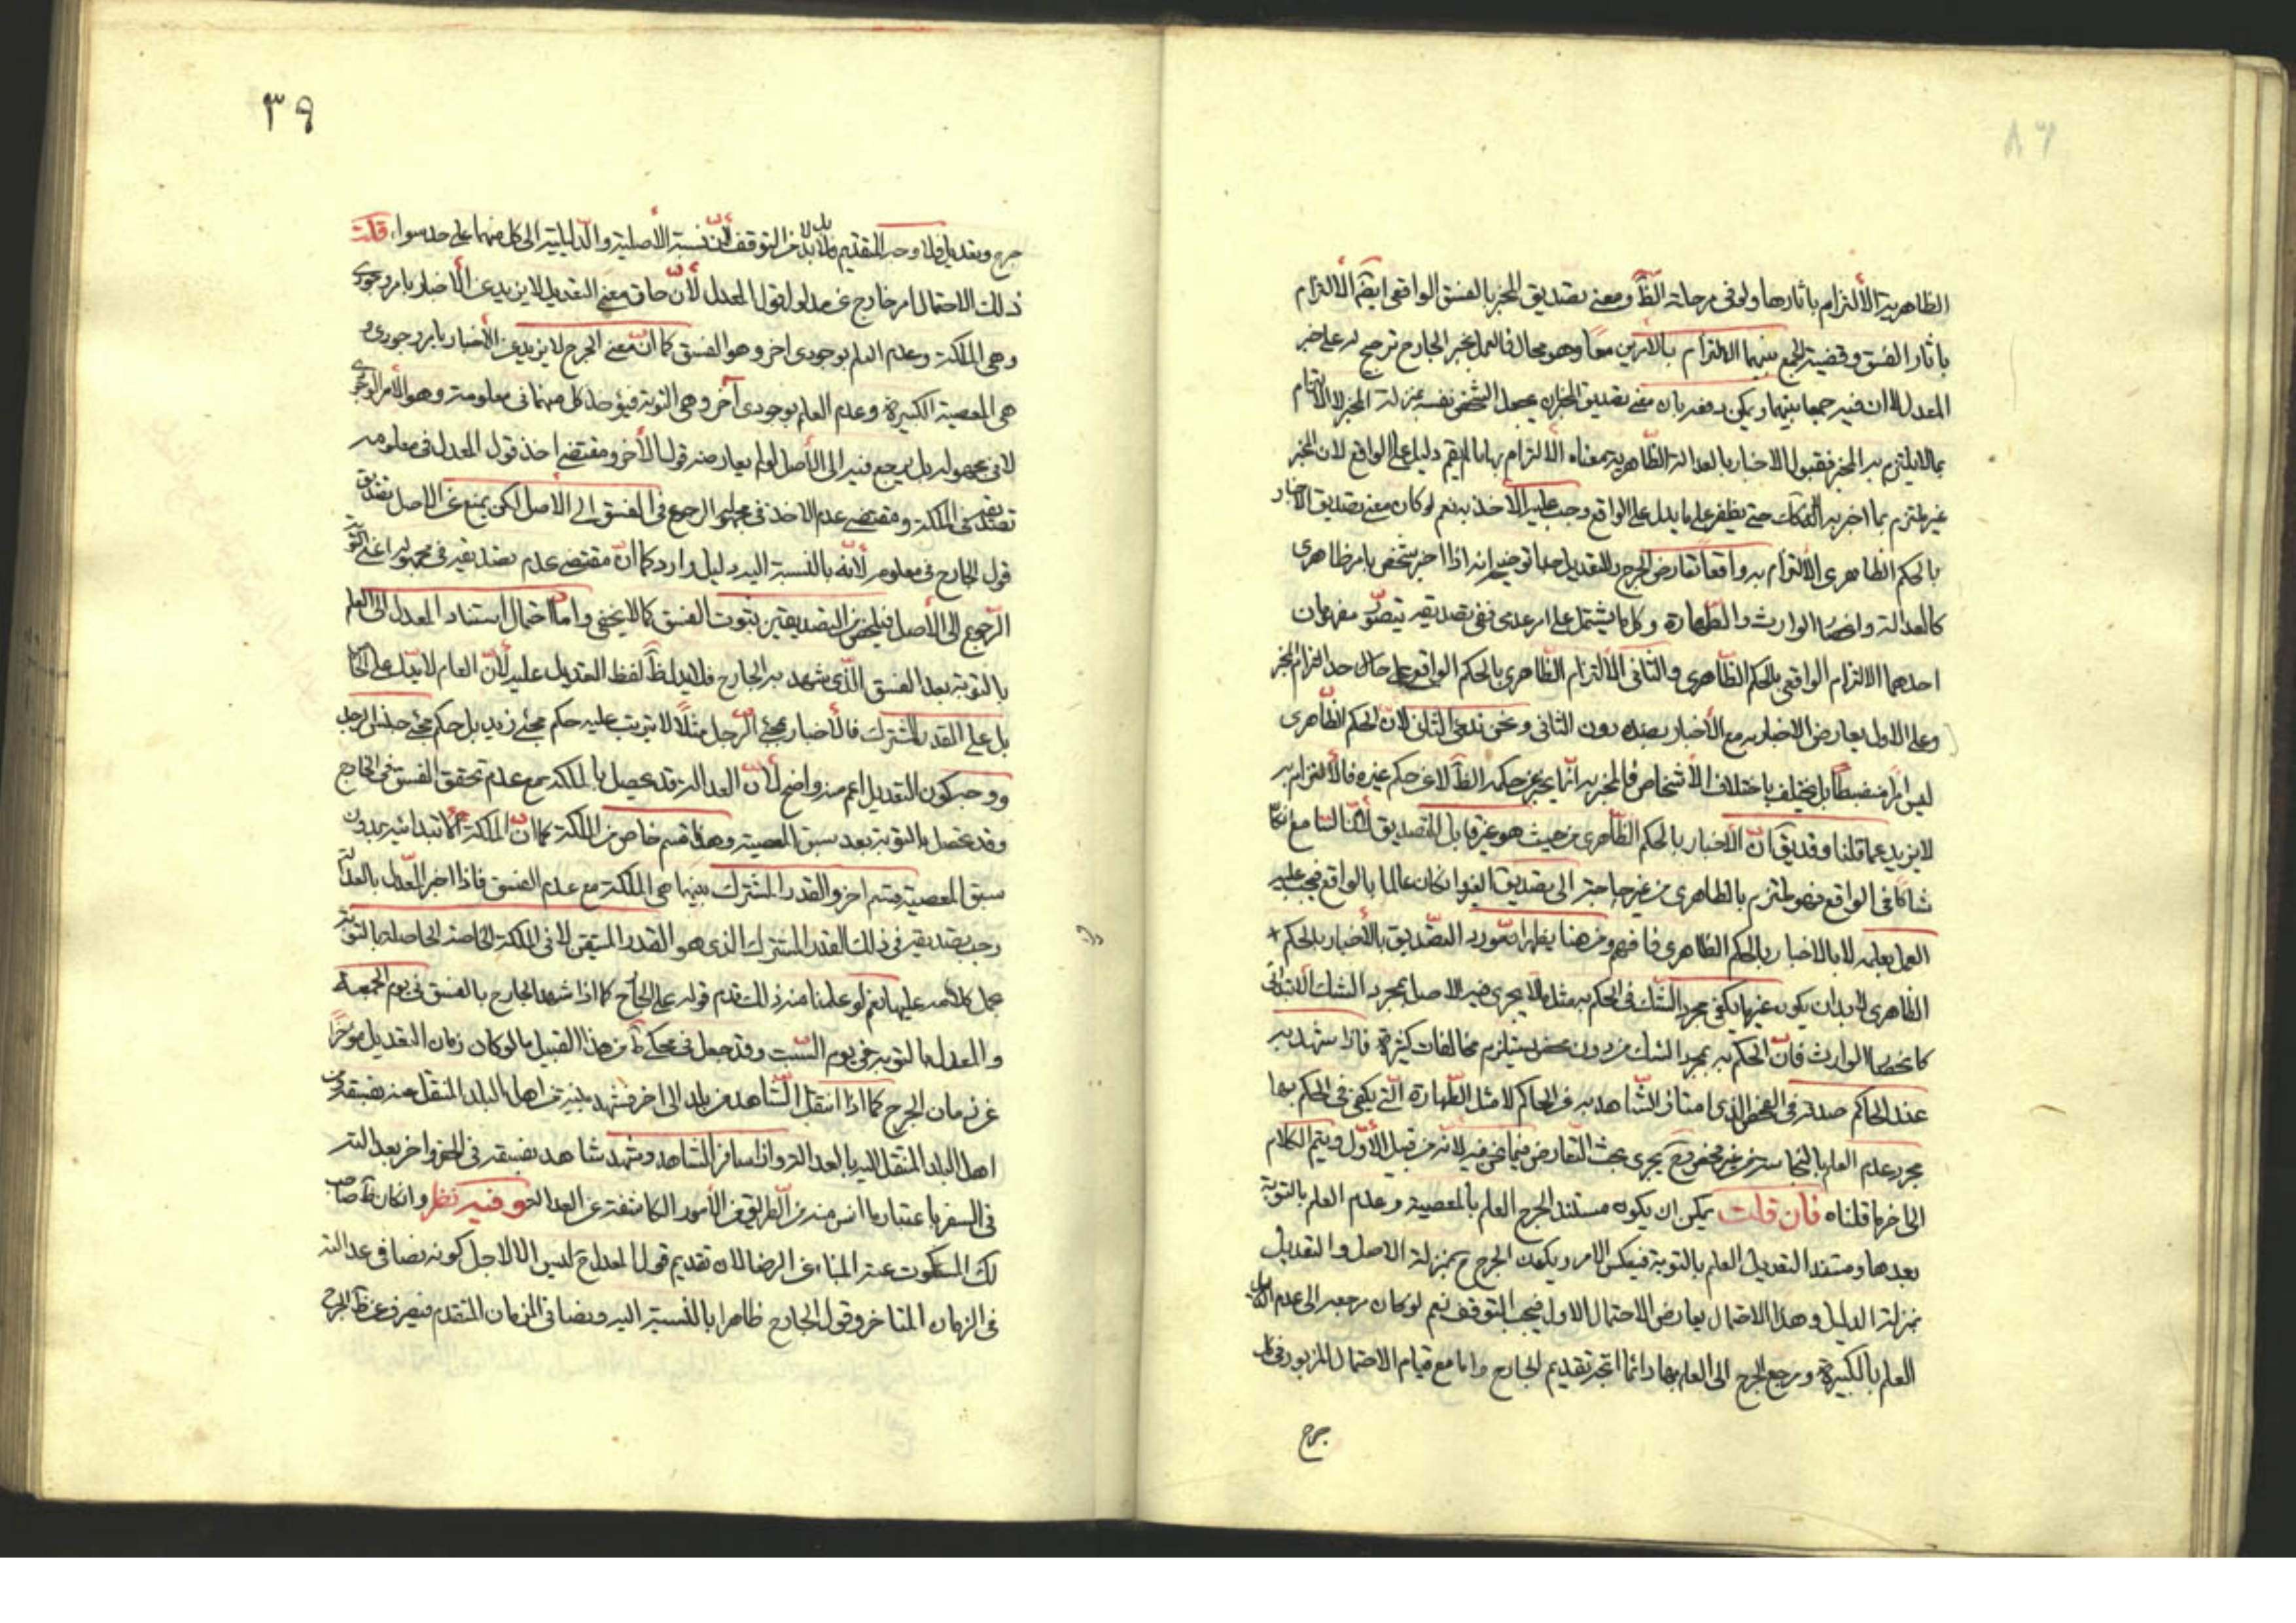 الظاهرية الألتزام بآثارها ولو فى مرحلة الظ ومعنى تصديق المخبر بالفسق الواقعى ايقم الألتزام
باثار الفسق وقضية الجمع بينهما الالتزام بالأمرين معاً وهو محال فالعمل بخبر الجارح ترجيح له على خبر
المعدل لا ان فيه جمعا بينهما ويمكن دفعه بان معنى تصديق المخبر ان يجعل الشخص نفسه بمنزلة المخبر لا الالتزام
بما لا يلتزم به المخبر فقبول الاخبار بالعدالة الظاهرية معناه الالتزام بها ما لم يقم دليل على الواقع لان المخبر
غير ملتزم بما اخبر به حتى يظفر على ما يدل على الواقع وجب عليه الأخذ به نعم لو كان معنى تصديق الاخبار
بالحكم الظاهرى الألتزام به واقعا تعارض الجرح والتعديل توضيح انه اذا اخبر شخص بامر ظاهرى
كالعدالة وانحصار الوارث والطهارة وكل ما يشتمل على امر عدمى ففى تصديقه يتصور مفهومان
احدهما الالتزام الواقعى بالحكم الظاهرى والثانى الألتزام الظاهرى بالحكم الواقعى على حد التزام المخبر
وعلى الاول يعارض الاخبار به مع الأخبار بضده دون الثانى ونحن ندعى الثانى لأن الحكم الظاهرى
ليس امرا منضبطاً بل يختلف باختلاف الأشخاص فالمخبر به انما يخبر عن حكمه الظ لا عن حكم غيره فالألتزام به
لا يزيد عما قلنا وقد يق ان الأخبار بالحكم الظاهرى من حيث هو غير قابل للتصديق لأن السامع ان كان
شاكا فى الواقع فهو ملتزم بالظاهرى من غير حاجة الى تصديق الغير وان كان عالما بالواقع فيجب عليه
العمل بعلمه لا بالاخبار بالحكم الظاهرى فافهم ومن هنا يظهر ان مورد التصديق بالأخبار بالحكم
الظاهرى لا بد ان يكون غير ما يكفى مجرد الشك فى الحكم به مثل ما لا يجرى فيه الاصل بمجرد الشك الابتدائى
كانحصار الوارث فان الحكم به بمجرد الشك من دون فحص يستلزم مخالفات كثيرة فاذا شهد به
عند الحاكم صدقه فى الفحص الذى امتاز الشاهد به عن الحاكم لا مثل الطهارة التى يكفى فى الحكم بها
مجرد عدم العلم بالنجاسة من غير فحص وح يجرى بحث التعارض فيما نحن فيه لانه من قبيل الأول ويتم الكلام
الى اخر ما قلناه فان قلت يمكن ان يكون مستند الجرح العلم بالمعصية وعدم العلم بالتوبة
بعدها ومستند التعديل العلم بالتوبة فينعكس الامر ويكون الجرح ح بمنزلة الاصل والتعديل
بمنزلة الدليل وهذا الاحتمال يعارض الاحتمال الاول فيجب التوقف نعم لو كان مرجعه الى عدم
العلم بالكبيرة ومرجع الجرح الى العلم بها دائما اتجه تقديم الجارح واما مع قيام الاحتمال المزبور فى كل
جرح
٣٩
جرح وتعديل فلا وجه للتقديم بل لا بد من التوقف لأن نسبة الأصلية والدليلية الى كل منهما على حد سواء قلت
ذلك الاحتمال امر خارج عن مدلول قول المعدل لأن حاق معنى التعديل لا يزيد عن الأخبار بامر وجودى
وهى الملكة وعدم العلم بوجودى اخر وهو الفسق كما ان معنى الجرح لا يزيد عن الأخبار بامر وجودى و
هى المعصية الكبيرة وعدم العلم بوجودى آخر وهى التوبة فيؤخذ كل منهما فى معلومه وهو الأمر الوجودى
لا فى مجهوله بل يرجع فيه الى الأصل لو لم يعارضه قول الأخر ومقتضى اخذ قول المعدل فى معلومه
تصديقه فى الملكة ومقتضى عدم الاخذ فى مجهوله الرجوع فى الفسق الى الأصل لكن يمنع عن الاصل تصديق
قول الجارح فى معلومه لأنه بالنسبة اليه دليل وارد كما ان مقتضى عدم تصديقه فى مجهوله اعنى التوبة
الرجوع الى الأصل فيلخص من التصديقين بثبوت الفسق كما لا يخفى واما احتمال استناد المعدل الى العلم
بالتوبة بعد الفسق الذى شهد به الجارح فلا يدل ظ لفظ التعديل عليه لأن العام لا يدل على الخاص
بل على القدر المشترك فالأخبار بمجئ الرجل مثلاً لا يترتب عليه حكم مجئ زيد بل حكم مجئ جنس الرجل
ووجه كون التعديل اعم منه واضح لأن العدالة قد تحصل بالملكة مع عدم تحقق الفسق فى الخارج
وقد تحصل بالتوبة بعد سبق المعصية وهذا قسم خاص من الملكة كما ان الملكة الابتدائية بدون
سبق المعصية قسم اخر والقدر المشترك بينهما هى الملكة مع عدم الفسق فاذا اخبر المعدل بالعدالة
وجب تصديقه فى ذلك القدر المشترك الذى هو القدر المتيقن لا فى الملكة الخاصة الحاصلة بالتوبة
بحمل كلامه عليها نعم لو علمنا منه ذلك قدم قوله على الجارح كما اذا شهد الجارح بالفسق فى يوم الجمعة
والمعدل بالتوبة فى يوم السبت وقد جعل فى محكى من هذا القبيل ما لو كان زمان التعديل مؤخراً
عن زمان الجرح كما اذا انتقل الشاهد من بلد الى اخر فشهد اهل البلد المنتقل عنه بفسقه و
اهل البلد المنتقل اليه بالعدالة واذا سافر الشاهد وشهد شاهد بفسقه فى الحضر واخر بعدالته
فى السفر باعتبار ما انس منه فى الطريق من الأمور الكاشفة عن العدالة وفيه نظر وان كان ظ صاحب
لك المسكوت عنه المنبئ عن الرضا لان تقديم قول المعدل ح ليس الا لاجل كونه نصا فى عدالته
فى الزمان المتاخر وقول الجارح ظاهرا بالنسبة اليه ونصا فى الزمان المتقدم فيصرف عن ظ الجرح